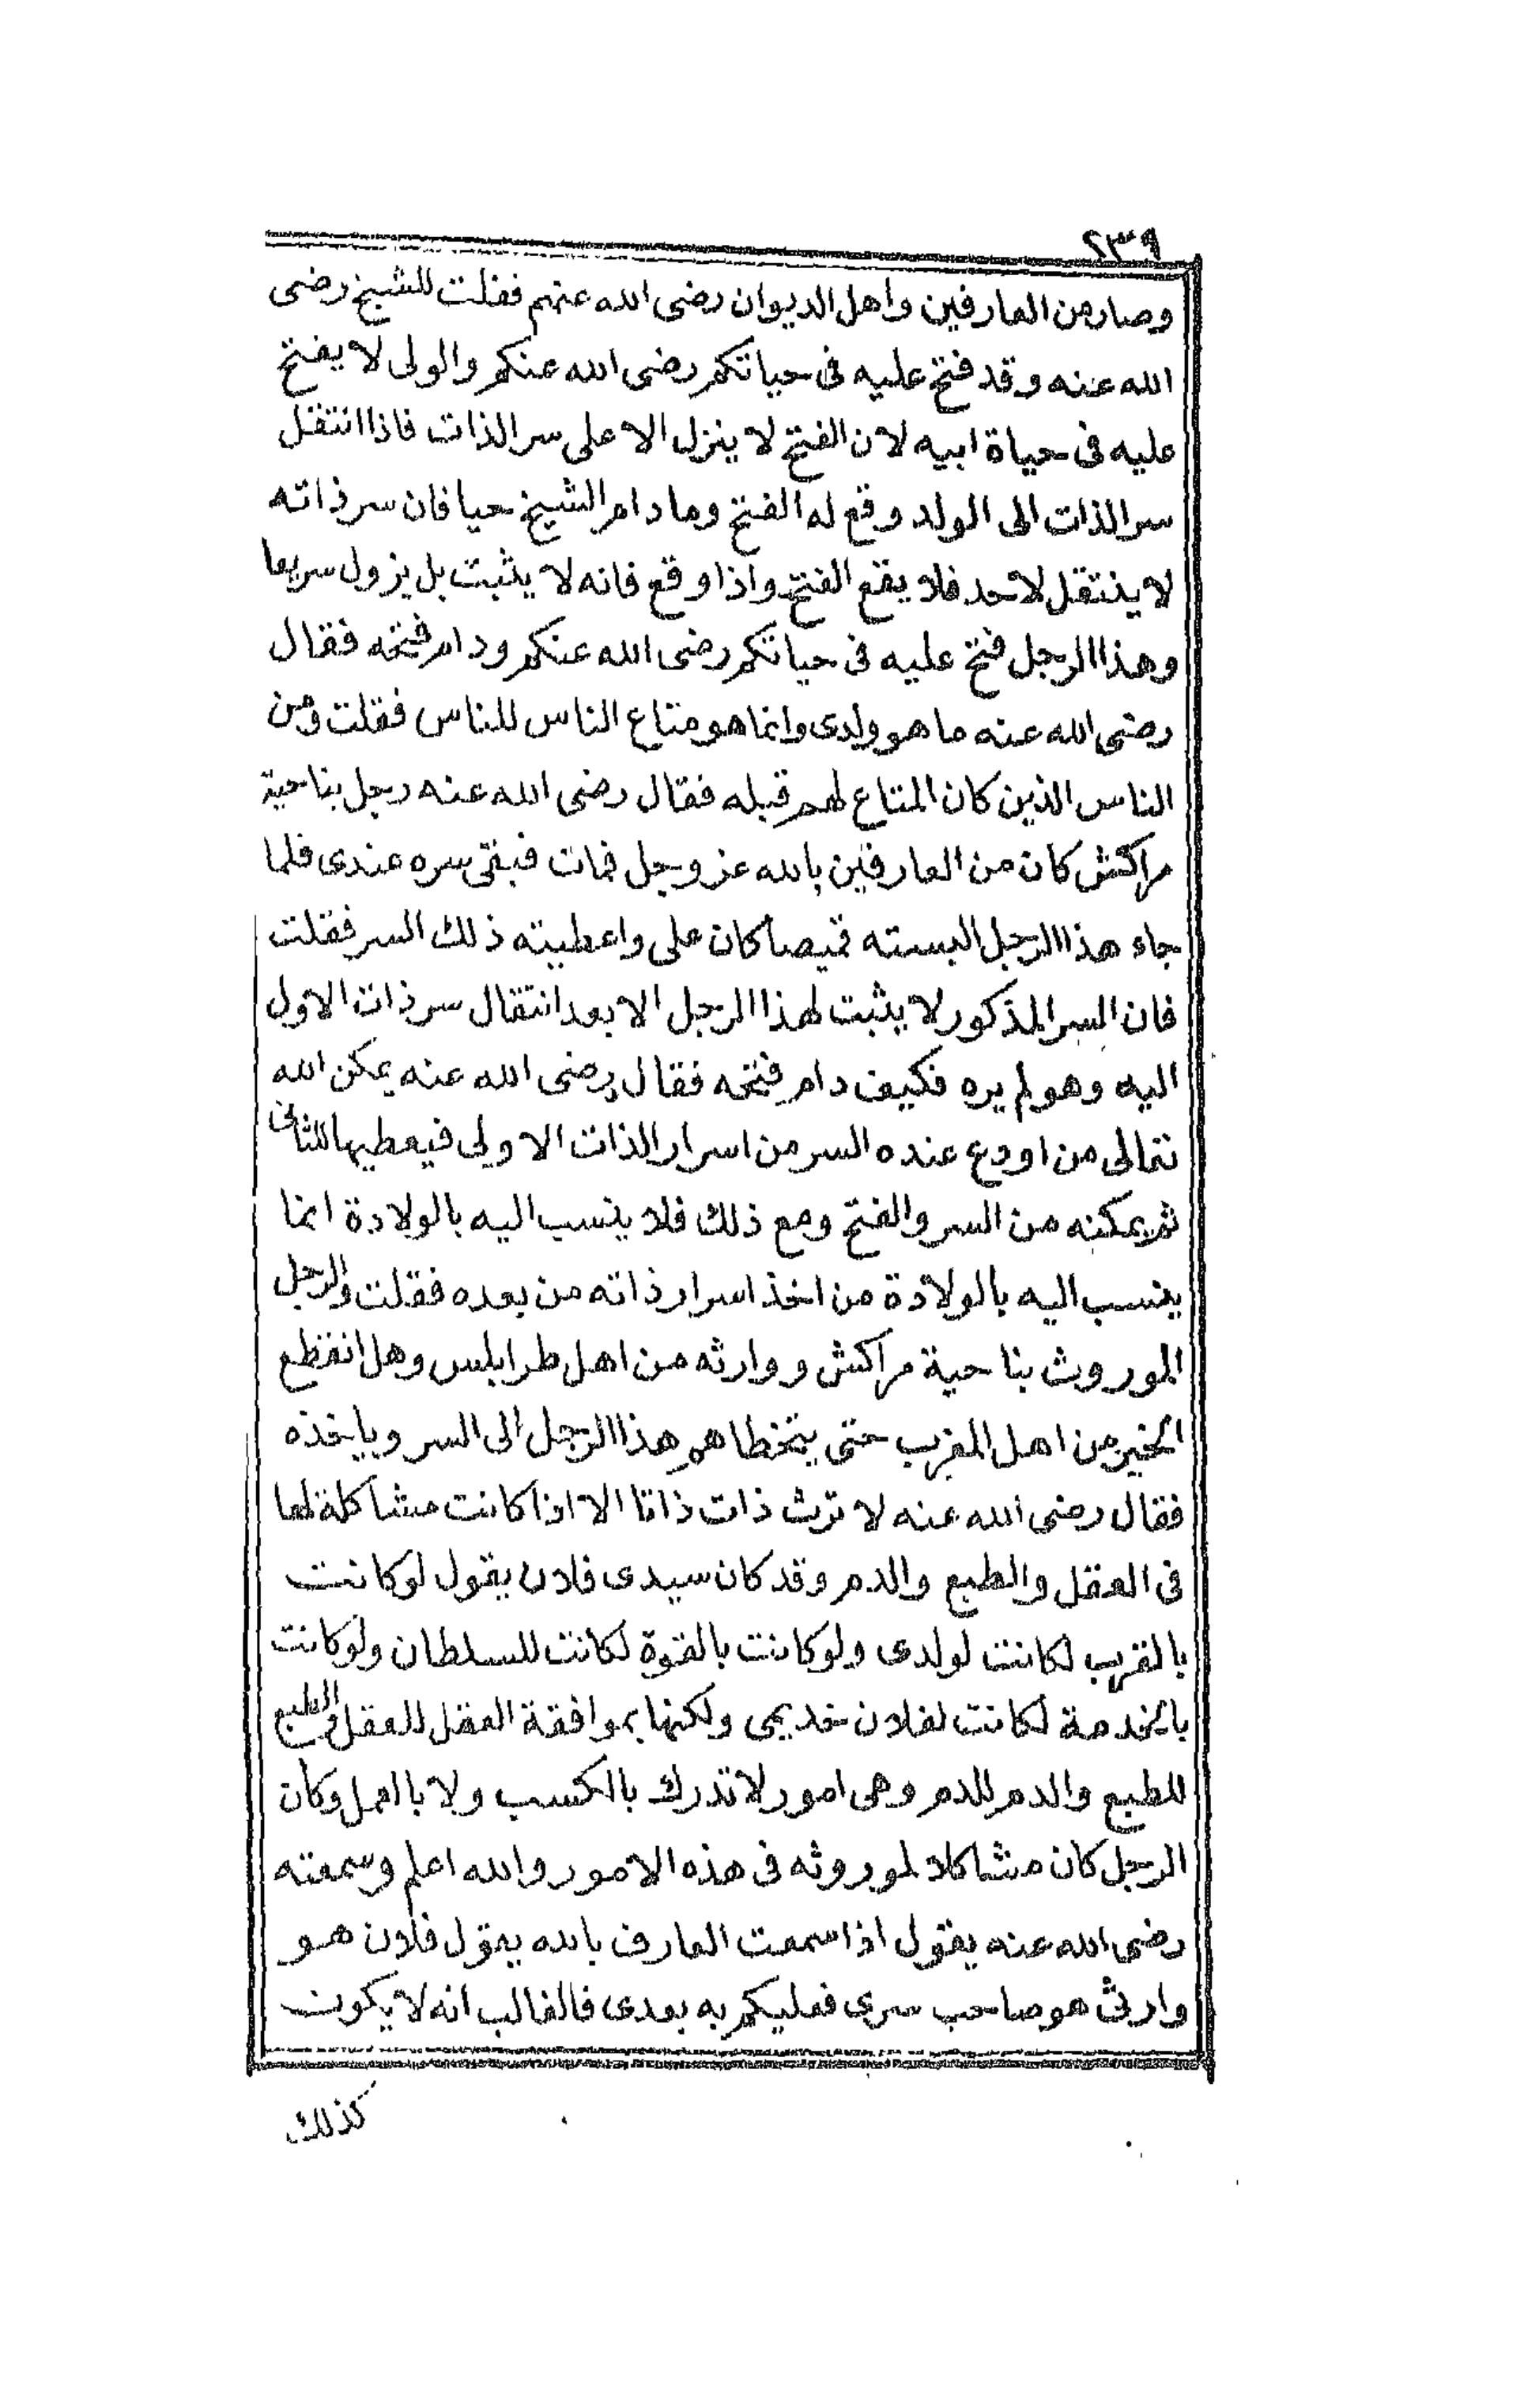 ٢٣٩
وصار من العارفين واهل الديوان رضى الله عنهم فقلت للشيخ رضى
الله عنه وقد فتح عليه فى حياتكم رضى الله عنكم والولى لا يفتح
عليه فى حياة ابيه لان الفتح لا ينزل الا على سر الذات فاذا انتقل
سر الذات الى الولد وقع له الفتح وما دام الشيخ حيا فان سر ذاته
لا ينتقل لاحد فلا يقع الفتح واذا وقع فانه لا يثبت بل يزول سريعا
وهذا الرجل فتح عليه فى حياتكم رضى الله عنكم ودام فتحه فقال
رضى الله عنه ما هو ولدى وانما هو متاع الناس للناس فقلت ومن
الناس الذين كان المتاع لهم قبله فقال رضى الله عنه رجل بناحية
مراكش كان من العارفين بالله عز وجل فمات فبقى سره عندى فلما
جاء هذا الرجل البسته قميصا كان على واعطيته ذلك السر فقلت
فان السر المذكور لا يثبت لهذا الرجل الا بعد انتقال سر ذات الاول
اليه وهو لم يره فكيف دام فتحه فقال رضى الله عنه يمكن الله
تعالى من اودع عنده السر من اسرار الذات الاولى فيعطيها للثانى
ثم يمكنه من السر والفتح ومع ذلك فلا ينسب اليه بالولادة انما
ينسب اليه بالولادة من اخذ اسرار ذاته من بعده فقلت والرجل
الموروث بناحية مراكش ووارثه من اهل طرابلس وهل انقطع
الخير من اهل المغرب حتى يتخطاهم هذا الرجل الى السر وياخذه
فقال رضى الله عنه لا ترث ذات ذاتا الا اذا كانت مشاكلة لها
فى العقل والطبع والدم وقد كان سيدى فلان يقول لو كانت
بالقرب لكانت لولدى ولو كانت بالقوة لكانت للسلطان ولو كانت
بالخدمة لكانت لفلان خديمى ولكنها بموافقة العقل للعقل والطبع
للطبع والدم للدم وهى امور لا تدرك بالكسب ولا بالعمل وكان
الرجل كان مشاكلا لموروثه فى هذه الامور والله اعلم وسمعته
رضى الله عنه يقول اذا سمعت العارف بالله يقول فلان هو
وارثى هو صاحب سرى فعليكم به بعدى فالغالب انه لا يكون
كذلك